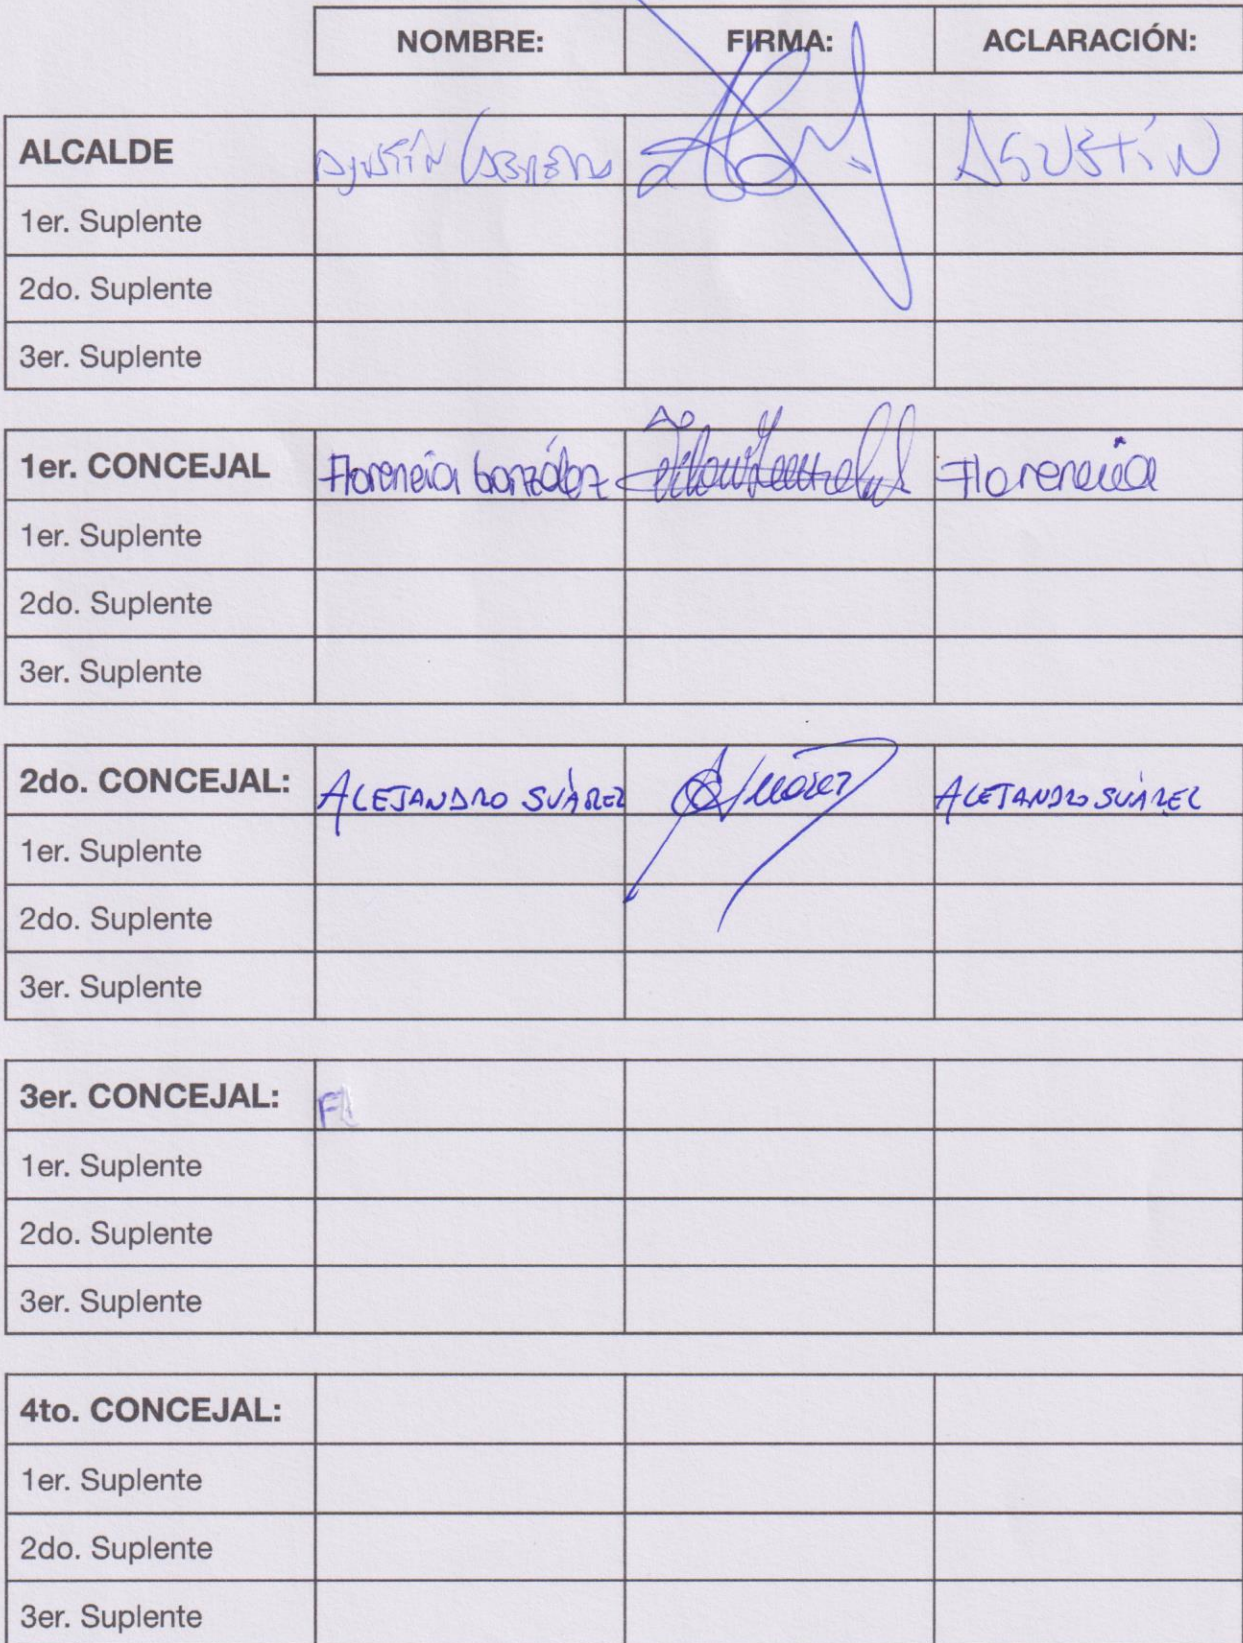 NOMBRE: FIRMA: ACLARACIÓN:
ALCALDE Agustín AGUSTÍN
1er. Suplente
2do. Suplente
3er. Suplente
1er. CONCEJAL Florencia González Florencia
1er. Suplente
2do. Suplente
3er. Suplente
2do. CONCEJAL: ALEJANDRO SUÁREZ Suárez ALEJANDRO SUÁREZ
1er. Suplente
2do. Suplente
3er. Suplente
3er. CONCEJAL: Fl
1er. Suplente
2do. Suplente
3er. Suplente
4to. CONCEJAL:
1er. Suplente
2do. Suplente
3er. Suplente